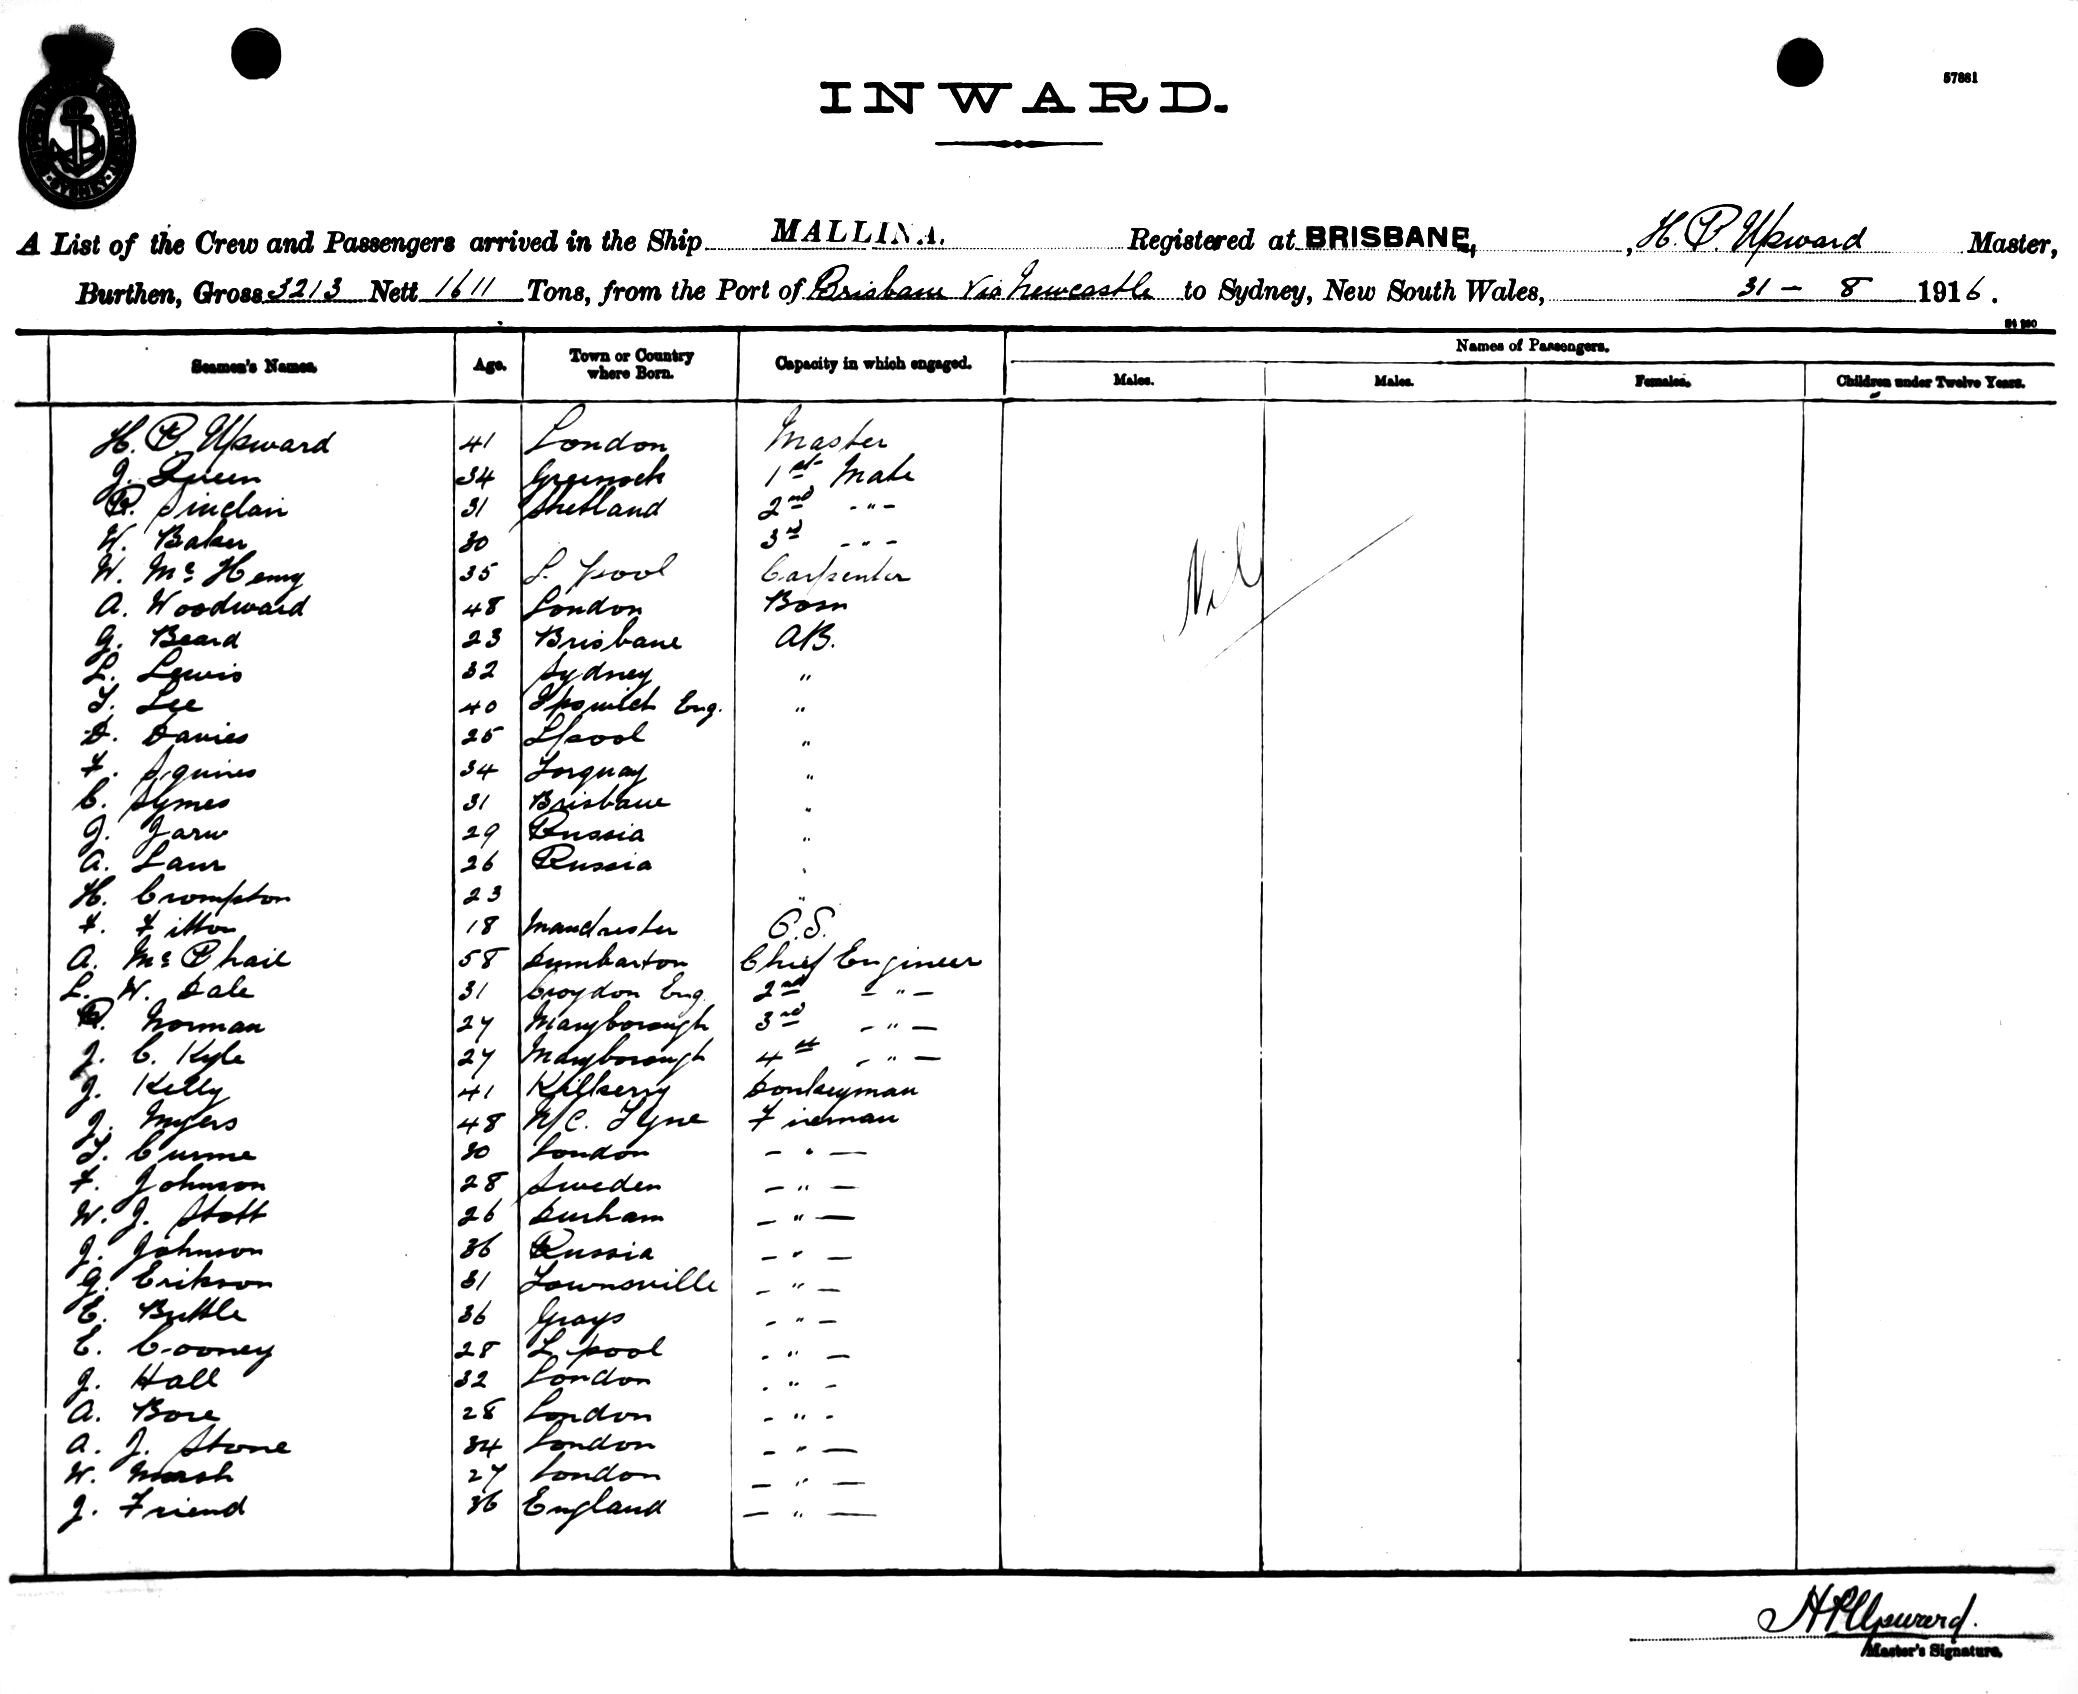 57881
INWARD.
A List of the Crew and Passengers arrived in the Ship MALLINA. Registered at BRISBANE, , H. P. Upward Master,
Burthen, Gross 3213 Nett 1611 Tons, from the Port of Brisbane via Newcastle to Sydney, New South Wales, 31 - 8 1916.
Names of Passengers.
Seamen's Names. Age. Town or Country where Born. Capacity in which engaged. Males. Males. Females. Children under Twelve Years.
H. P. Upward 41 London Master
J. Queen 34 Greenock 1st Mate
R. Sinclair 31 Shetland 2nd -"-
W. Baker 30 3rd -"-
W. Mc Henry 35 L. pool Carpenter
A. Woodward 48 London Bosn
G. Beard 23 Brisbane AB.
L. Lewis 32 Sydney "
T. Lee 40 Ipswich Eng. "
D. Davies 25 L/pool "
F. Squires 34 Torquay "
C. Symes 31 Brisbane "
J. Jarw 29 Russia "
A. Laur 26 Russia "
H. Crompton 23 "
F. Fitton 18 Manchester O.S.
A. Mc Phail 58 Dumbarton Chief Engineer
L. W. Dale 31 Croydon Eng. 2nd - " -
R. Norman 27 Maryborough 3rd - " -
J. C. Kyle 27 Maryborough 4th - " -
J. Kelly 41 Kilkerry Donkeyman
J. Myers 48 N/C. Tyne Fireman
T. Curme 30 London - " -
F. Johnson 28 Sweden - " -
W. J. Stott 26 Durham - " -
J. Johnson 36 Russia - " -
G. Erikson 31 Townsville - " -
E. Buttle 36 Grays - " -
E. Cooney 28 L. pool - " -
J. Hall 32 London - " -
A. Bore 28 London - " -
A. J. Stone 34 London - " -
W. Marsh 27 London - " -
J. Friend 36 England - " -
Nil
H P Upward.
Master's Signature.